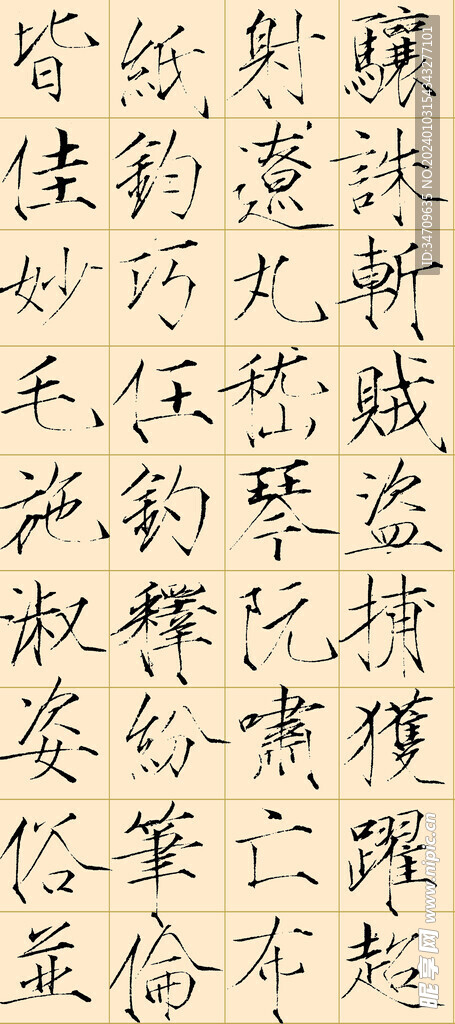 驤誅斬賊盜捕獲躍超
射遼丸嵇琴阮嘯亡布
紙鈞巧任釣釋紛筆倫
皆佳妙毛施淑姿俗並
ID:34709635 NO:20240103154343277101
昵享网 www.nipic.cn